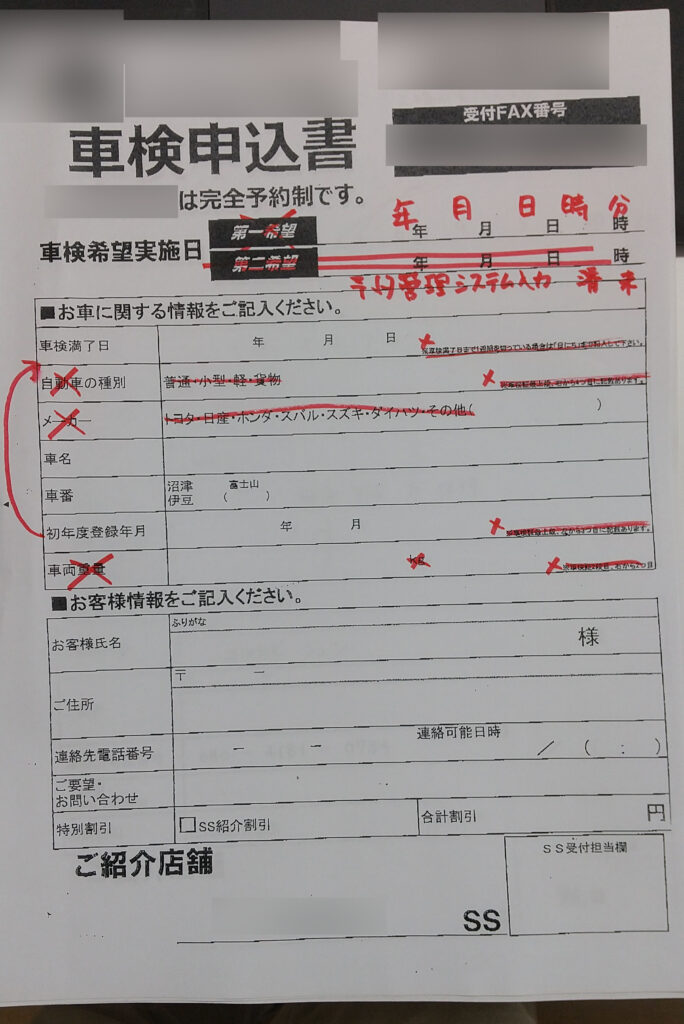 受付FAX番号
車検申込書
は完全予約制です。
年 月 日 時 分
車検希望実施日
第一希望 年 月 日 時
第二希望 年 月 日 時
管理システム入力 済 未
■お車に関する情報をご記入ください。
車検満了日 年 月 日
自動車の種別 普通・小型・軽・貨物
メーカー トヨタ・日産・ホンダ・スバル・スズキ・ダイハツ・その他( )
車名
車番 沼津 富士山
伊豆 ( )
初年度登録年月 年 月
車両重量 kg
■お客様情報をご記入ください。
お客様氏名 ふりがな 様
ご住所 〒 ー
連絡先電話番号 ー ー 連絡可能日時 / ( : )
ご要望・
お問い合わせ
特別割引 □SS紹介割引 合計割引 円
ご紹介店舗
SS受付担当欄
SS